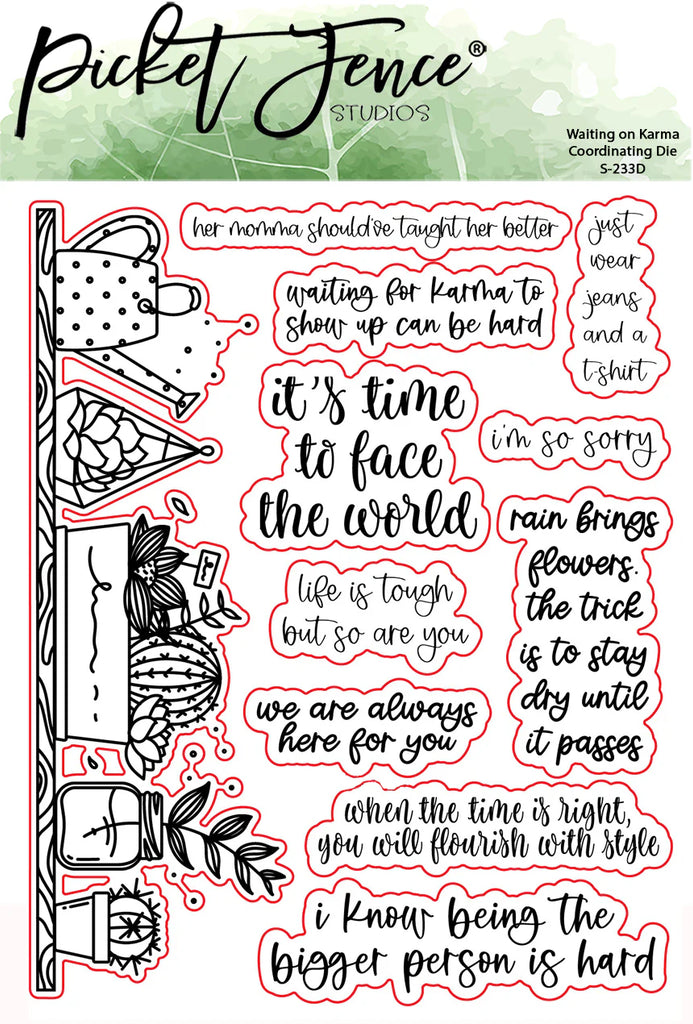 Picket Fence®
STUDIOS
Waiting on Karma
Coordinating Die
S-233D
her momma should've taught her better
just
wear
jeans
and a
t-shirt
waiting for karma to
show up can be hard
it's time
to face
the world
i'm so sorry
rain brings
flowers.
the trick
is to stay
dry until
it passes
life is tough
but so are you
we are always
here for you
when the time is right,
you will flourish with style
i know being the
bigger person is hard